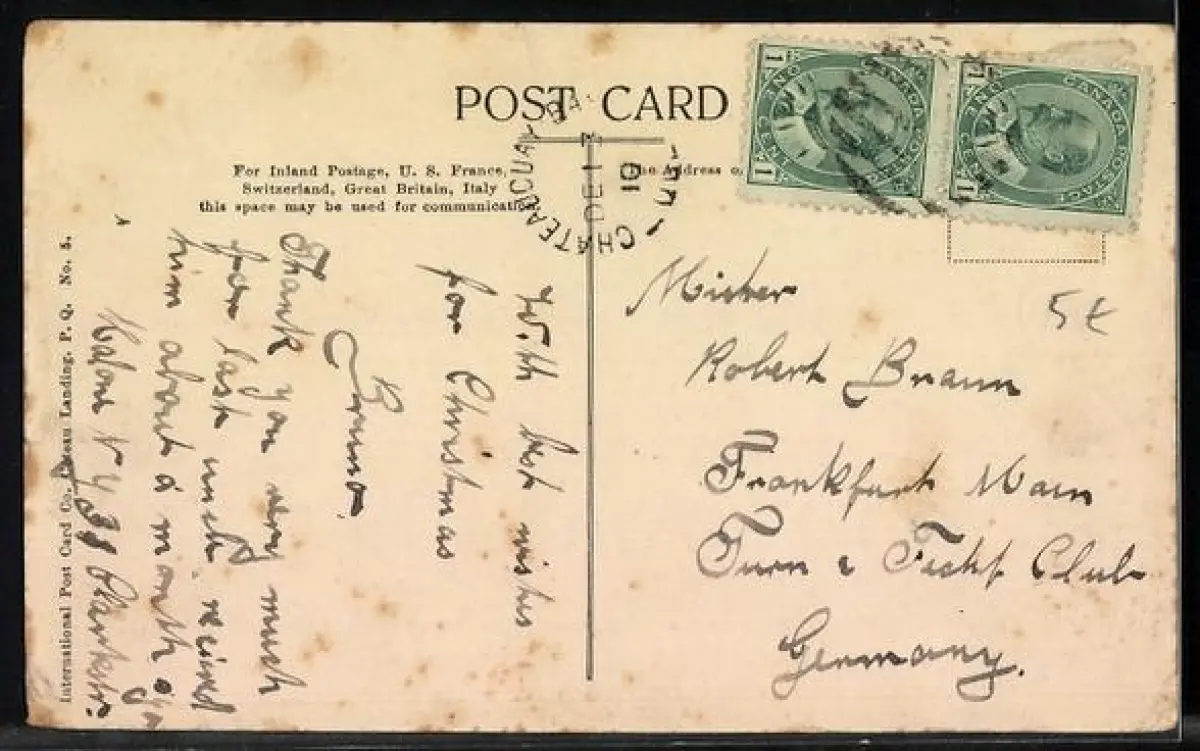 POST CARD
For Inland Postage, U. S. France,
Switzerland, Great Britain, Italy
this space may be used for communication.
Address
CHATEAUGUAY
DE 1
10
CANADA POSTAGE
ONE CENT
1 1
CANADA POSTAGE
ONE CENT
1 1
With best wishes
for Christmas
Bruno.
Thank you very much
for last
him about a month
Malone N Y 38
International Post Card Co. Coteau Landing, P. Q. No. 5.
5¢
Mister
Robert Braun
Frankfurt Main
Turn & Fecht Club
Germany.